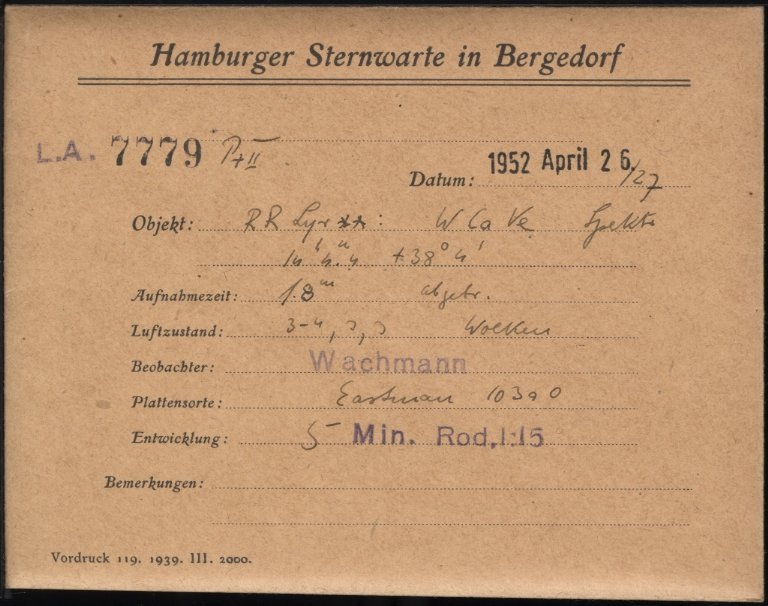 Hamburger Sternwarte in Bergedorf
L.A. 7779 P+II
Datum: 1952 April 26./27
Objekt: RR Lyr **: W Ca Ve Spektr
14h 4m.4 +38° 4'
Aufnahmezeit: 18m abgebr.
Luftzustand: 3-4, 3, 3 Wolken
Beobachter: Wachmann
Plattensorte: Eastman 103a0
Entwicklung: 5 Min. Rod. 1:15
Bemerkungen:
Vordruck 119. 1939. III. 2000.